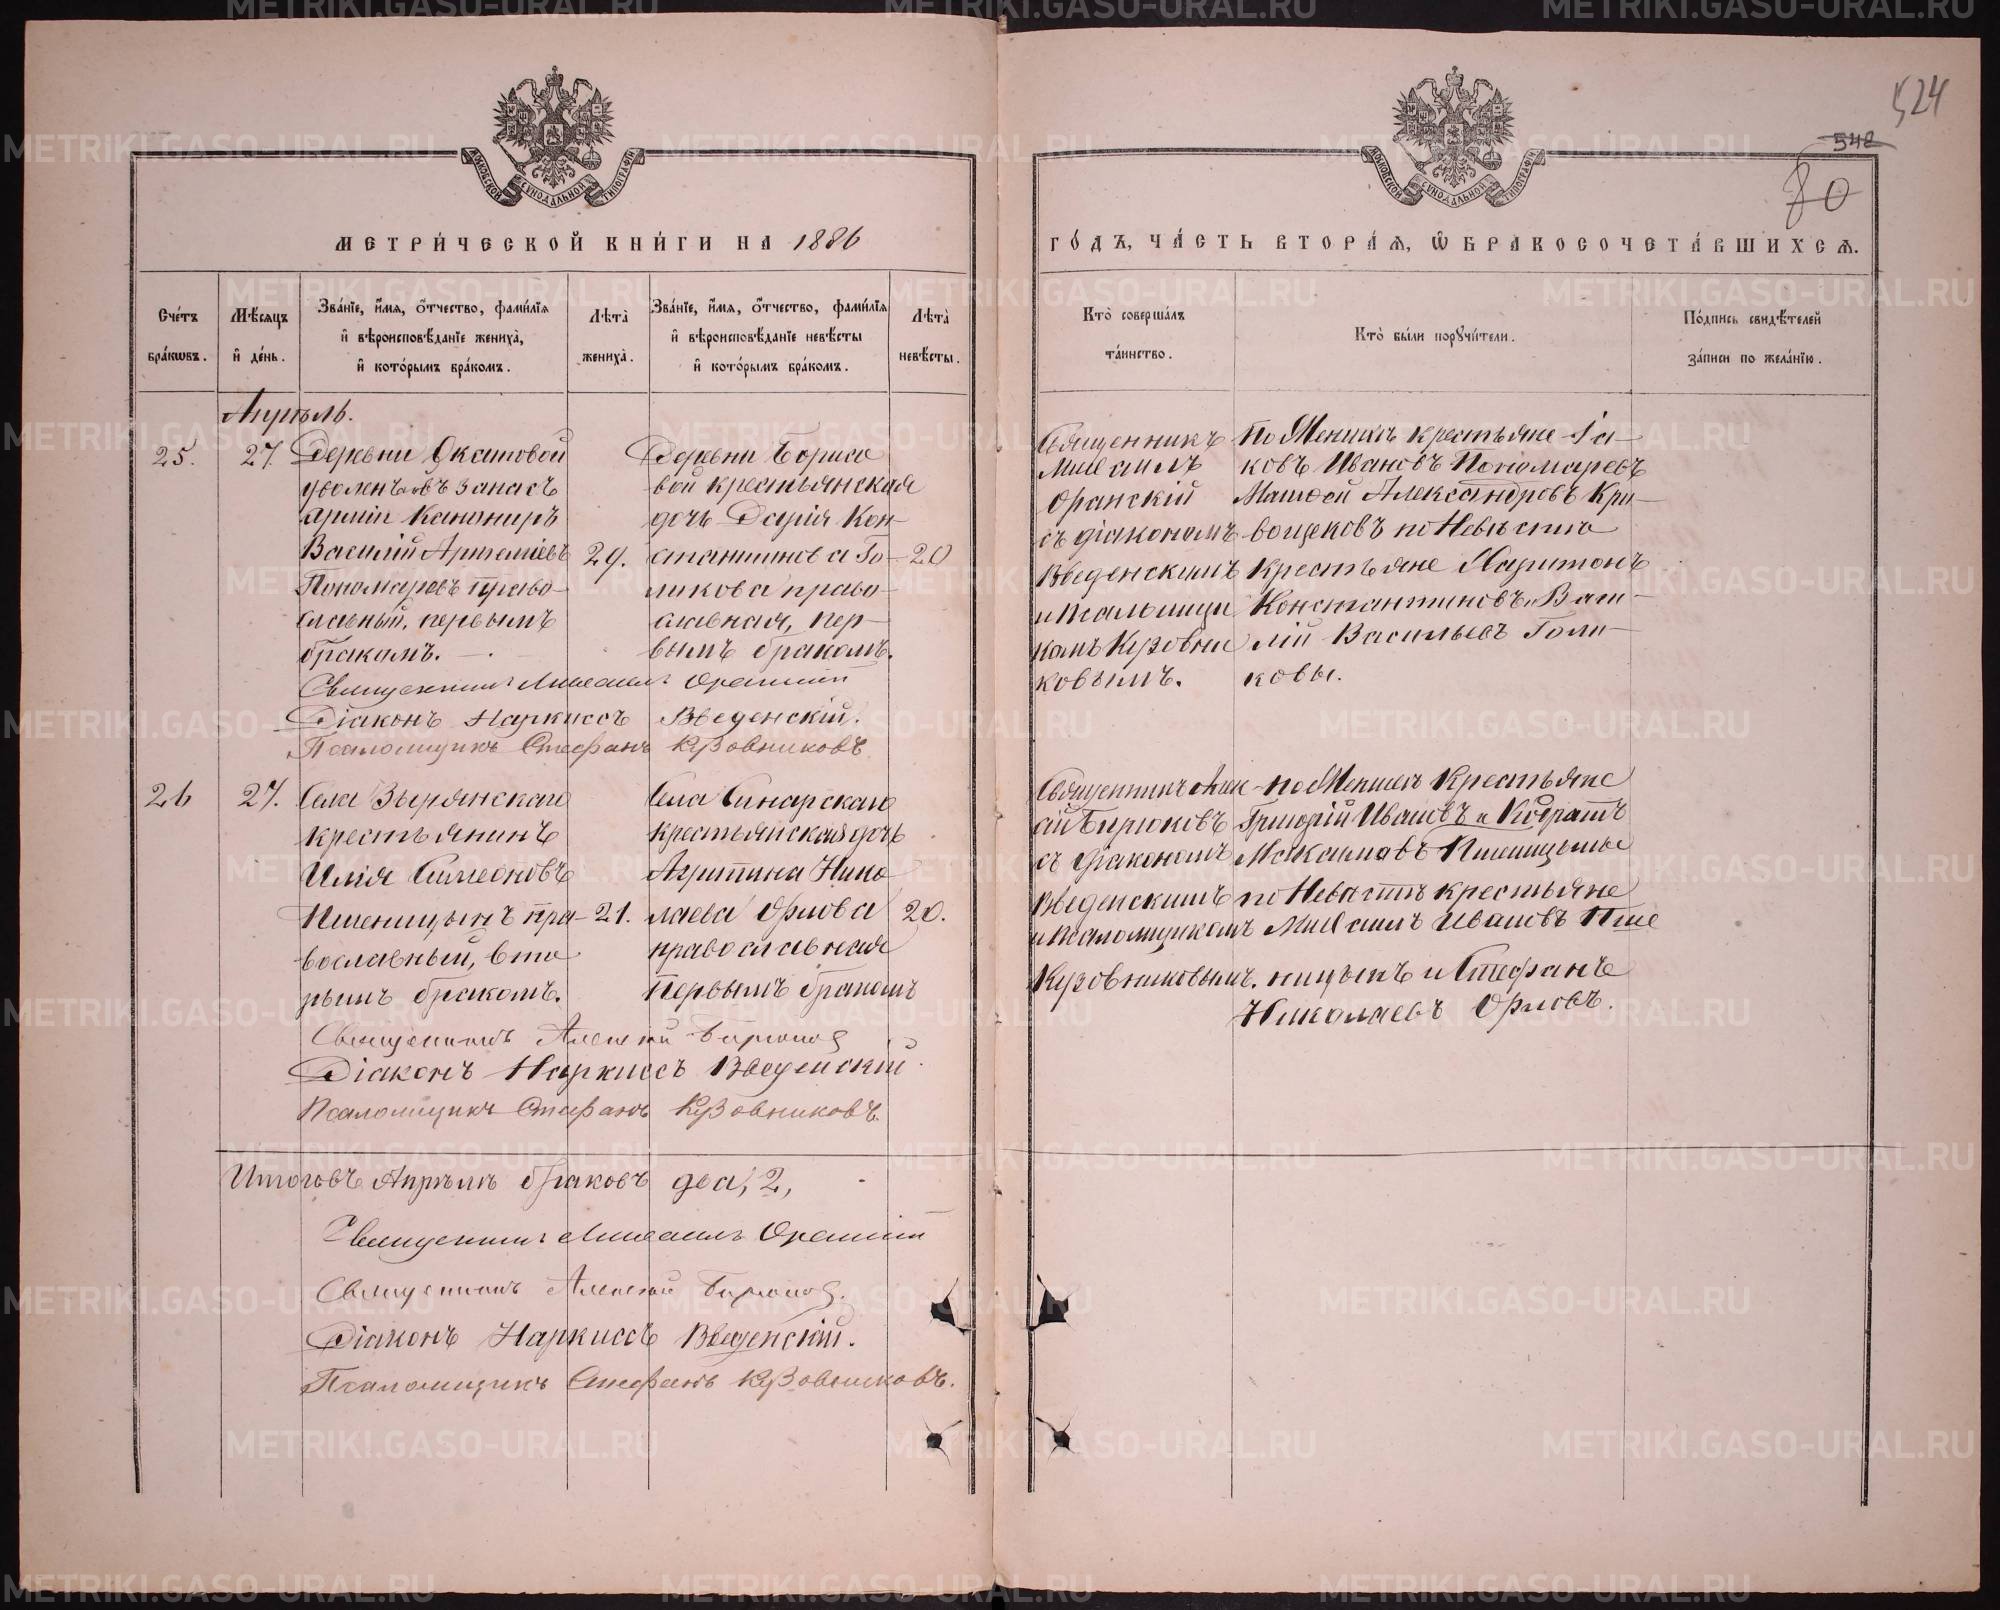 524
548
80
МОСКОВСКОЙ СѴНОДАЛЬНОЙ ТИПОГРАФІИ
МОСКОВСКОЙ СѴНОДАЛЬНОЙ ТИПОГРАФІИ
МЕТРИ́ЧЕСКОЙ КНИ́ГИ НА 1886
ГО́ДЪ, ЧА́СТЬ ВТОРА́Ѧ, Ѡ БРАКОСОЧЕТА́ВШИХСѦ.
Сче́тъ
бра́кѡвъ.
Мѣ́сѧцъ
и҆ де́нь.
Зва́нїе, и҆́мѧ, ѻ҆́тчество, фами́лїѧ
и҆ вѣроисповѣ́данїе жениха̀,
и҆ кото́рымъ бра́комъ.
Лѣта̀
жениха̀.
Зва́нїе, и҆́мѧ, ѻ҆́тчество, фами́лїѧ
и҆ вѣроисповѣ́данїе невѣ́сты
и҆ кото́рымъ бра́комъ.
Лѣта̀
невѣ́сты.
Кто̀ соверша́лъ
та́инство.
Кто̀ бы́ли порꙋчи́тели.
По́дпись свидѣ́телей
за́писи по жела́нїю.
Апрѣль.
25.
27.
Деревни Окатовой
уволенъ въ запасъ
арміи Канониръ
Василій Артеміевъ
Пономаревъ право-
славный, первымъ
бракомъ.
29.
Деревни Бориса
вой крестьянская
дочь Дарія Кон-
стантинова Го-
ликова право-
славная, пер-
вымъ бракомъ.
20
Священникъ
Михаилъ
Оранскій
съ діакономъ
Введенскимъ
и псаломщи
комъ Кузовни
ковымъ.
По Женихѣ крестьяне Іа-
ковъ Ивановъ Пономаревъ
Матѳей Александровъ Кри-
вощековъ по Невѣстѣ
крестьяне Харитонъ
Константиновъ, Васи-
лій Васильевъ Голи-
ковы.
Священникъ Михаилъ Оранскій
Діаконъ Наркиссъ Введенскій.
Псаломщикъ Стефанъ Кузовниковъ
26
27.
Села Зырянскаго
крестьянинъ
Илія Симеоновъ
Пшеницынъ пра-
вославный, вто
рымъ бракомъ.
21.
Села Синарскаго
крестьянская дочь
Агрипина Нико
лаева Орлова
православная
первымъ бракомъ
20.
Священникъ Алек
сій Бирюковъ
съ діакономъ
Введенскимъ
и псаломщикомъ
Кузовниковымъ.
по Женихѣ Крестьяне
Григорій Ивановъ и Кодратъ
Максимовъ Пшеницыны
по Невѣстѣ крестьяне
Михаилъ Ивановъ Пше
ницынъ и Стефанъ
Николаевъ Орловъ.
Священникъ Алексій Бирюковъ
Діаконъ Наркиссъ Введенскій
Псаломщикъ Стефанъ Кузовниковъ.
Итого въ Апрѣлѣ браковъ два, 2,
Священникъ Михаилъ Оранскій
Священникъ Алексій Бирюковъ.
Діаконъ Наркиссъ Введенскій.
Псаломщикъ Стефанъ Кузовниковъ.
METRIKI.GASO-URAL.RU